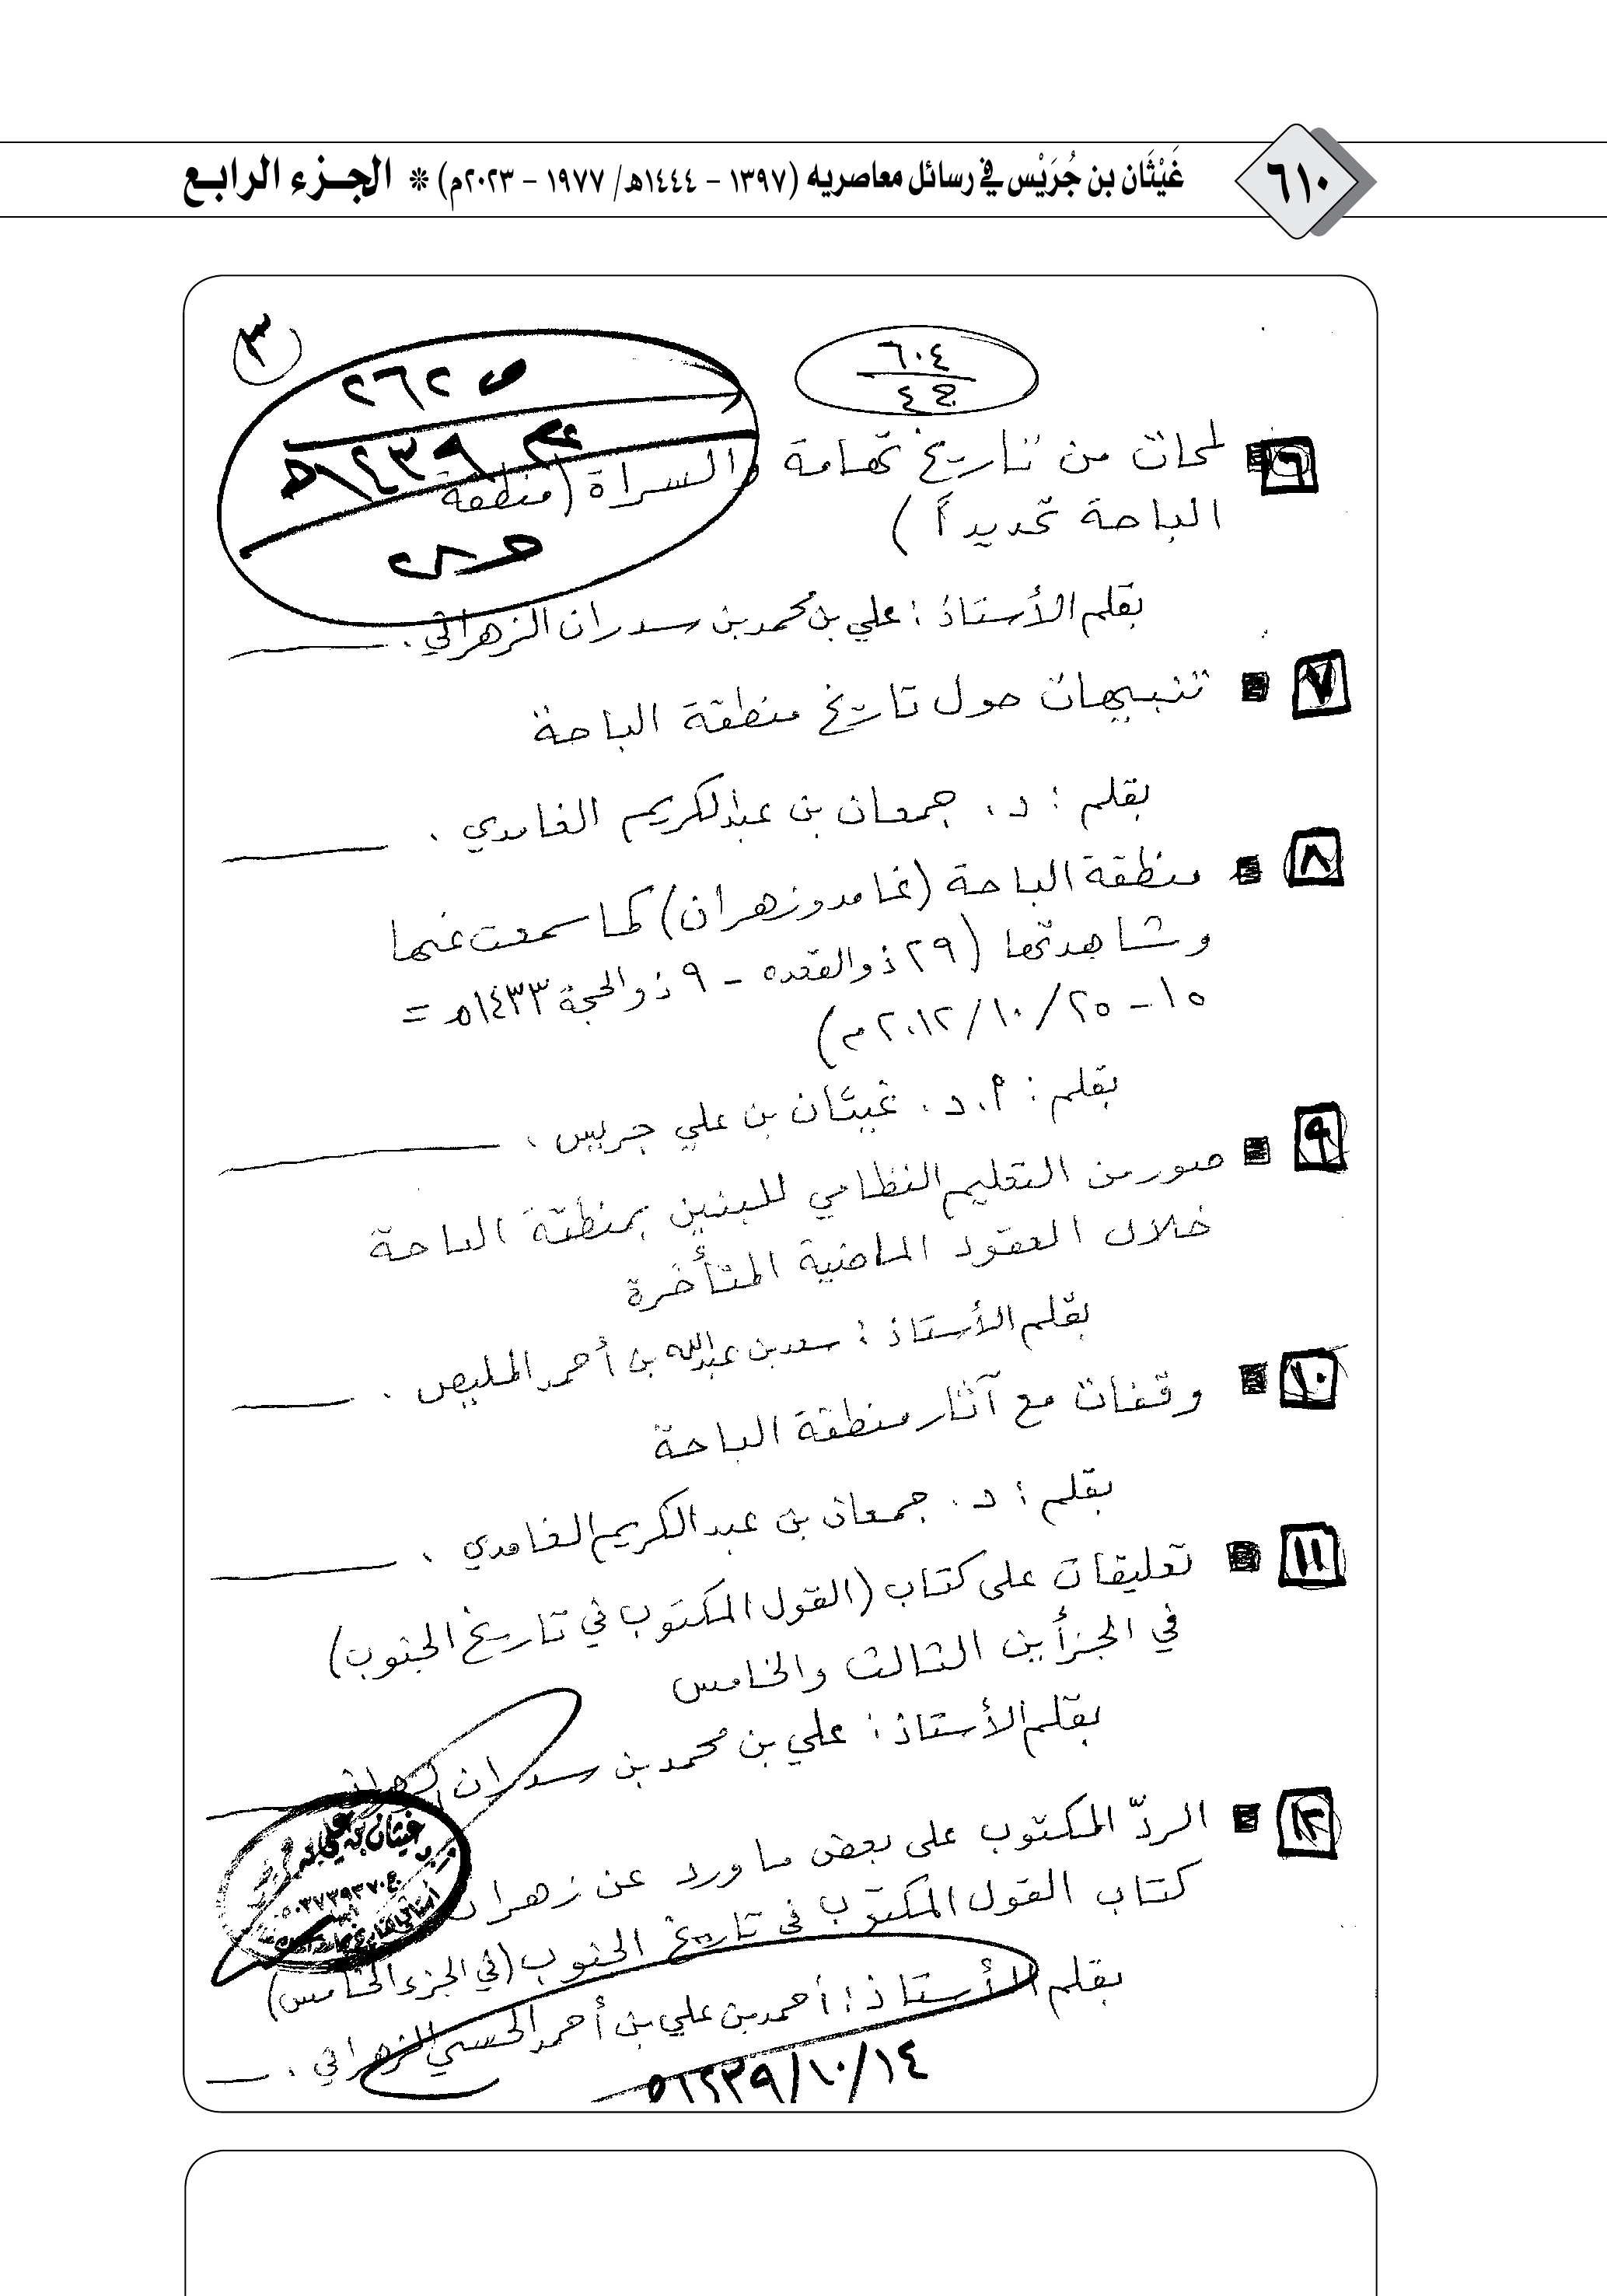 ٦١٠
غَيْثَان بن جُرَيْس في رسائل معاصريه (١٣٩٧ - ١٤٤٤هـ/ ١٩٧٧ - ٢٠٢٣م) * الجزء الرابع
٣
٦٠٤
ج٤
ص ٢٦٢
١٤٣٩هـ
٦ لمحات من تاريخ تهامة والسراة (منطقة
الباحة تحديداً)
بقلم الأستاذ : علي بن محمد بن سدران الزهراني .
٧ تنبيهات حول تاريخ منطقة الباحة
بقلم : د . جمعان بن عبدالكريم الغامدي .
٨ منطقة الباحة (غامد وزهران) كما سمعت عنها
وشاهدتها (٢٩ ذو القعده - ٩ ذو الحجة ١٤٣٣هـ =
١٥ - ٢٥/١٠/٢٠١٢م)
بقلم : أ. د . غيثان بن علي جريس .
٩ صور من التعليم النظامي للبنين بمنطقة الباحة
خلال العقود الماضية المتأخرة
بقلم الأستاذ : سعد بن عبدالله بن أحمد المليص .
١٠ وقفات مع آثار منطقة الباحة
بقلم : د . جمعان بن عبد الكريم الغامدي .
١١ تعليقات على كتاب (القول المكتوب في تاريخ الجنوب)
في الجزأين الثالث والخامس
بقلم الأستاذ : علي بن محمد بن سدران الزهراني
١٢ الردّ المكتوب على بعض ما ورد عن زهران
كتاب القول المكتوب في تاريخ الجنوب (في الجزء الخامس)
بقلم الأستاذ : أحمد بن علي بن أحمد الحسني الزهراني .
غيثان بن علي بن جريس
١٤/١٠/١٤٣٩هـ